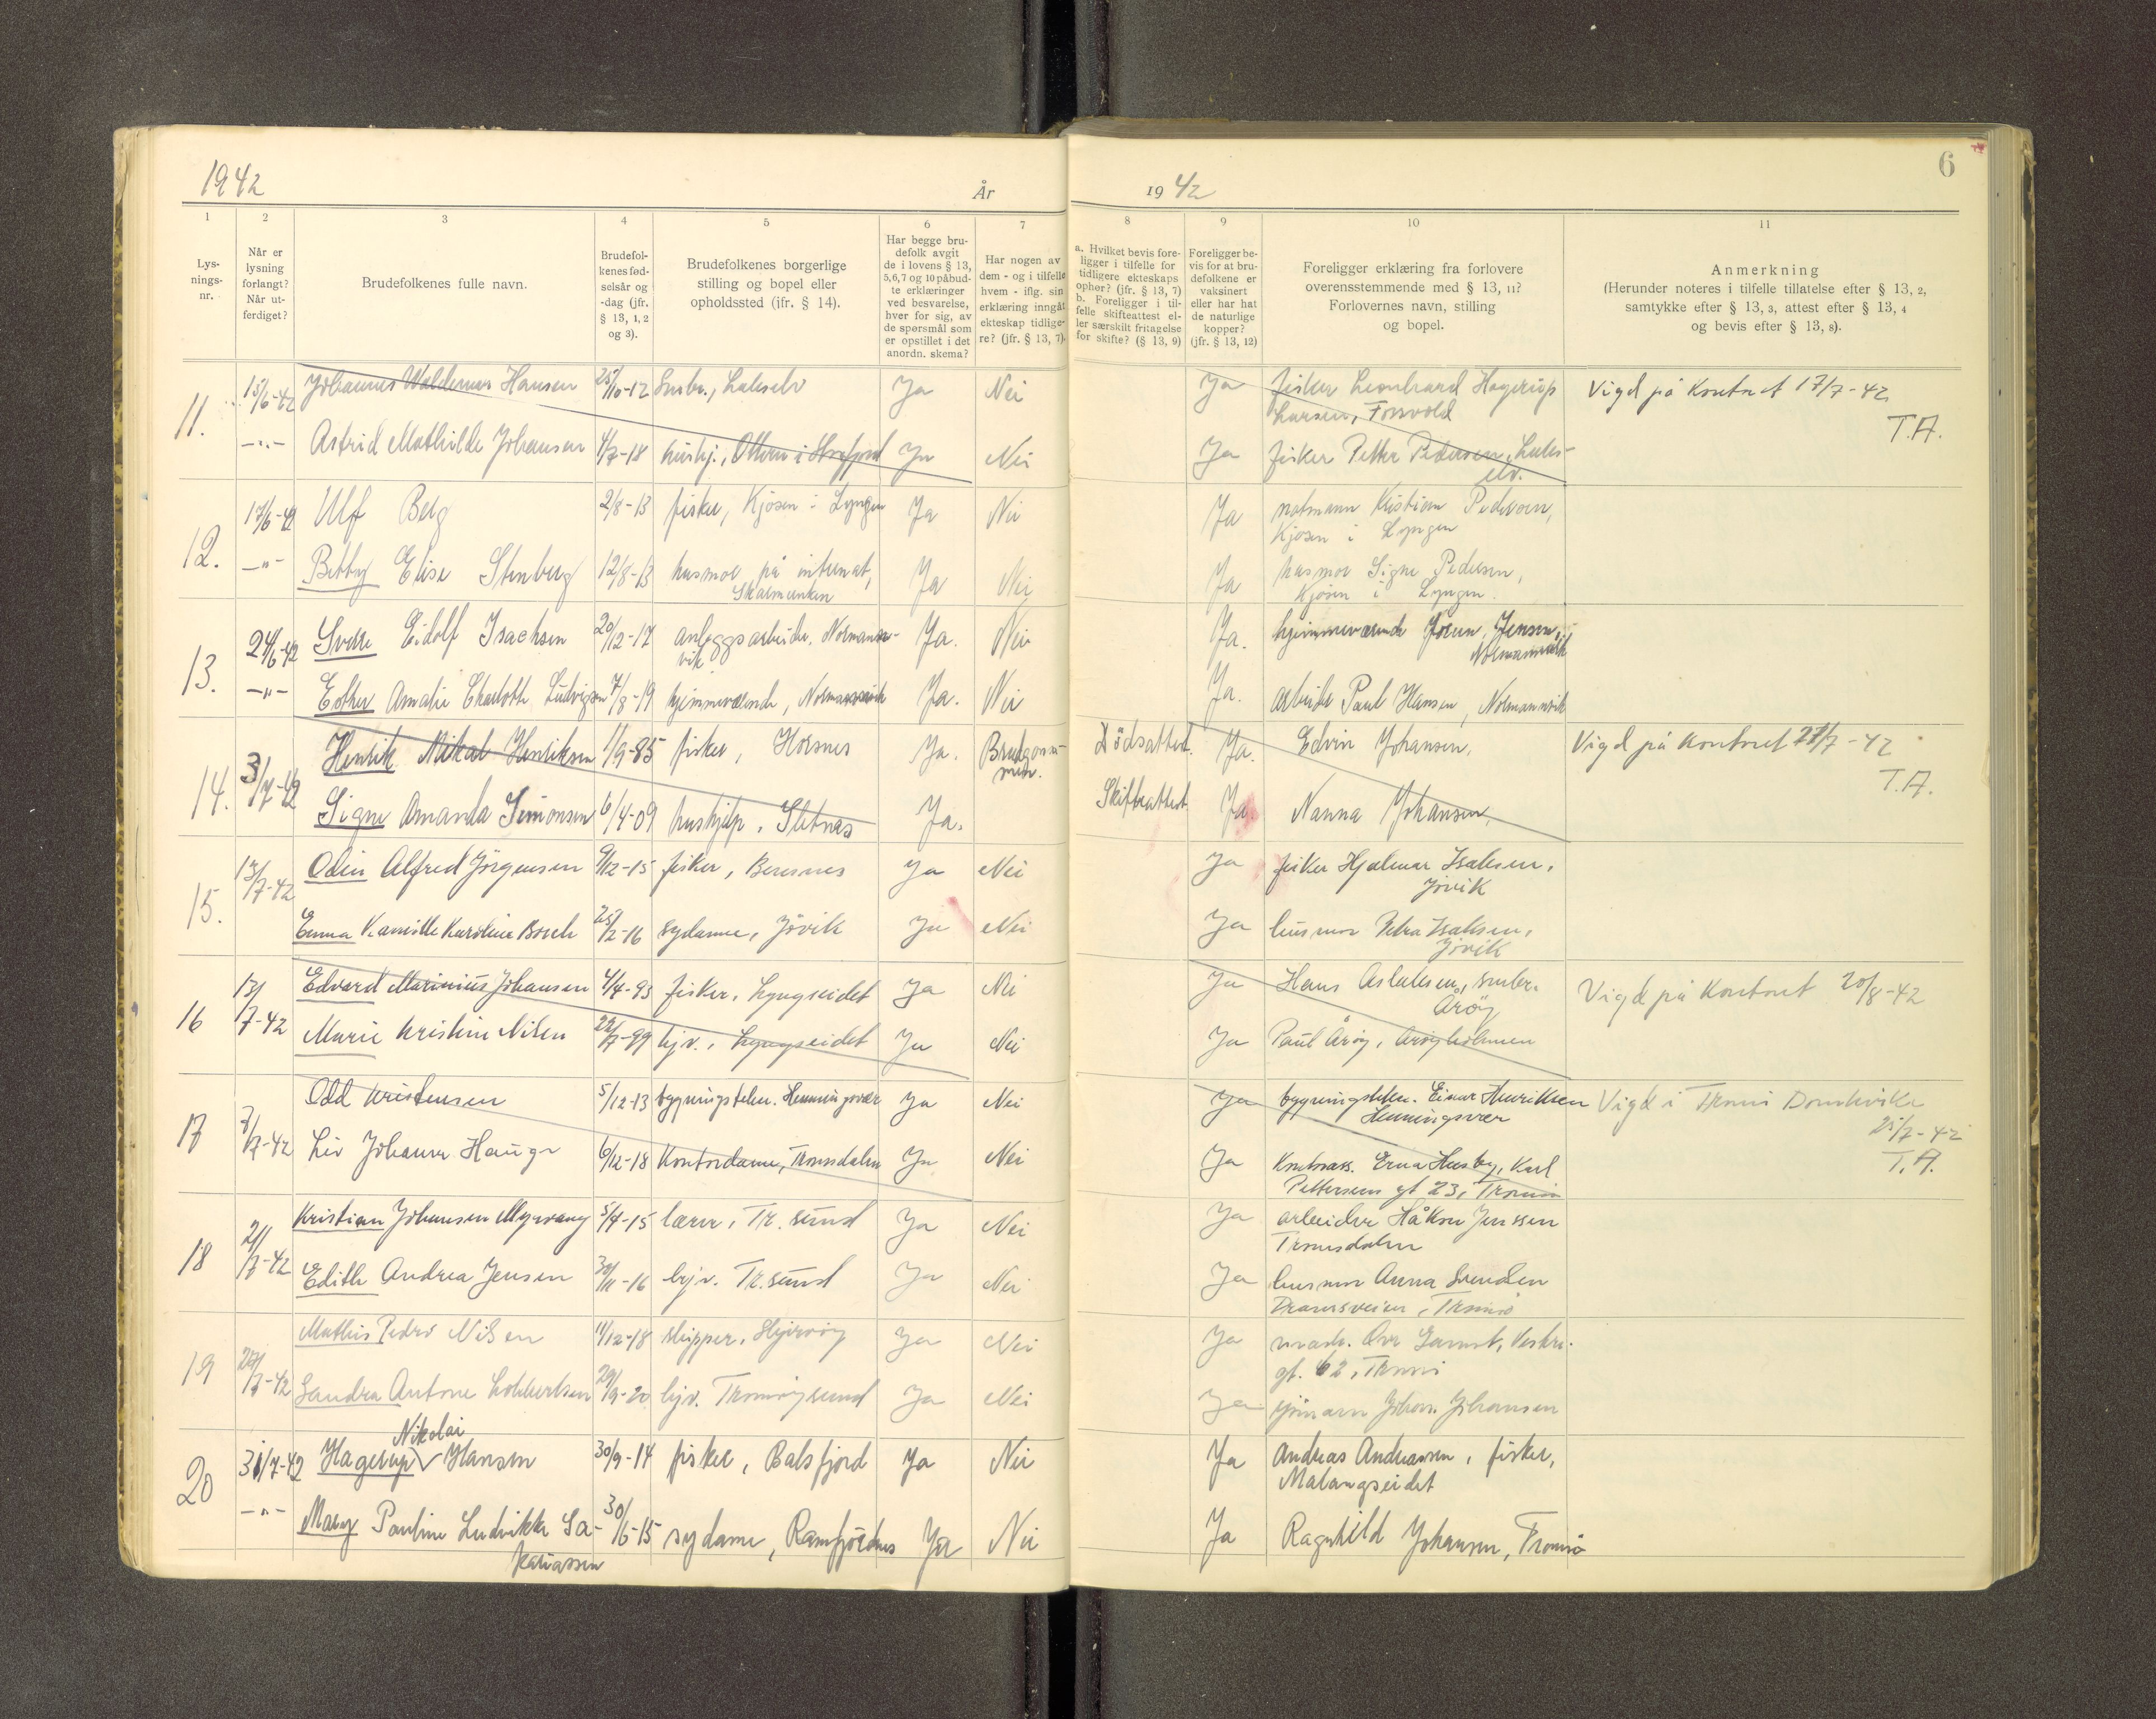 1942
År
1942
6
1
2
3
4
5
6
7
8
9
10
11
Lys-
nings-
nr.
Når er
lysning
forlangt?
Når ut-
ferdiget?
Brudefolkenes fulle navn.
Brudefol-
kenes fød-
selsår og
-dag (jfr.
§ 13, 1, 2
og 3).
Brudefolkenes borgerlige
stilling og bopel eller
opholdssted (jfr. § 14).
Har begge bru-
defolk avgit
de i lovens § 13,
5,6,7 og 10 påbud-
te erklæringer
ved besvarelse,
hver for sig, av
de spørsmål som
er opstillet i det
anordn. skema?
Har nogen av
dem - og i tilfelle
hvem - iflg. sin
erklæring inngåt
ekteskap tidlige-
re? (jfr. § 13, 7).
a. Hvilket bevis fore-
ligger i tilfelle for
tidligere ekteskaps
opher? (jfr. § 13, 7)
b. Foreligger i til-
felle skifteattest el-
ler særskilt fritagelse
for skifte? (§ 13, 9)
Foreligger be-
vis for at bru-
defolkene er
vaksinert
eller har hat
de naturlige
kopper?
(jfr. § 13, 12)
Foreligger erklæring fra forlovere
overensstemmende med § 13, 11?
Forlovernes navn, stilling
og bopel.
Anmerkning
(Herunder noteres i tilfelle tillatelse efter § 13, 2,
samtykke efter § 13, 3, attest efter § 13, 4
og bevis efter § 13, 8).
11. 15/6-42 Johannes Waldemar Hansen 25/10-12 Småbr., Lakselv Ja Nei Ja fisker Leonhard Hagerup
Larsen, Forvold Vigd på Kontoret 17/7-42
T.A.
-"- Astrid Mathilde Johansen 4/7-18 hushj., Ja Nei Ja fisker Petter Pedersen, Laks-
elv.
12. 17/6-42 Ulf Berg 2/8-13 fisker, Kjosen i Lyngen Ja Nei Ja notmann Kristian Pedersen,
Kjosen i Lyngen
-"- Betty Elise Stenberg 12/8-13 husmor på internat,
Skolmunken Ja Nei Ja husmor Signe Pedersen,
Kjosen i Lyngen.
13. 24/6-42 Sverre Eidolf Isachsen 20/12-17 anleggsarbeider, Normann-
vik Ja. Nei Ja. hjemmeværende Jorun Jensen,
Normannvik
-"- Esther Amalie Charlotte Ludvigsen 7/8-19 hjemmeværende, Normannvik Ja. Nei Ja. arbeider Paul Hansen, Normannvik
14. 3/7-42 Henrik Mikal Henriksen 1/9-85 fisker, Horsnes Ja. Brudgom-
men. Dødsattest. Ja. Edvin Johansen. Vigd på Kontoret 27/7-42
T.A.
Signe Amanda Simonsen 6/4-09 hushjelp, Sletnes Ja. Skifteattest. Ja. Nanna Johansen.
15. 13/7-42 Odin Alfred Jørgensen 9/12-15 fisker, Ja Nei Ja fisker Hjalmar Isaksen,
Jøvik
Emma Kamille Karoline Borch 25/2-16 sydame, Jøvik Ja Nei Ja husmor Petra Isaksen,
Jøvik
16 13/7-42 Edvard Marinius Johansen 4/4-93 fisker, Lyngseidet Ja Nei Ja Hans Aslaksen, småbr.
Årøy Vigd på Kontoret 20/8-42
Marie Kristine Nilsen 22/7-99 hjv., Lyngseidet Ja Nei Ja Paul Årøy, Årøyholmen
17 7/7-42 Odd Kristensen 5/12-13 bygningstekn. Henningsvær Ja Nei Ja bygningstekn. Einar Henriksen
Henningsvær Vigd i Tromsø Domkirke
25/7-42
T.A.
Liv Johanne Hauge 6/12-18 Kontordame, Tromsdalen Ja Nei Ja Kontorass. Erna Husby, Karl
Pettersens gt 23, Tromsø
18 21/7-42 Kristian Johansen Myrvang 5/4-15 lærer, Tr. sund Ja Nei Ja arbeider Håkon Jenssen
Tromsdalen
Edith Andrea Jensen 30/11-16 hjv. Tr. sund Ja Nei Ja husmor Anna Svendsen
Dramsveien, Tromsø
19 27/7-42 Mathis Pedro Nilsen 11/12-18 skipper, Skjervøy Ja Nei Ja mask. Ove Garnst, Vestre-
gt. 62, Tromsø
Sandra Antone Lohbertsen 29/9-20 hjv. Tromsøysund Ja Nei Ja sjømann Johan Johansen
20 31/7-42 Hagerup Nikolai Hansen 30/9-14 fisker, Balsfjord Ja Nei Ja Andreas Andreassen, fisker,
Malangseidet
-"- Mary Pauline Ludvikke Za-
kariassen 30/6-15 sydame, Ramfjordnes Ja Nei Ja Ragnhild Johansen, Tromsø